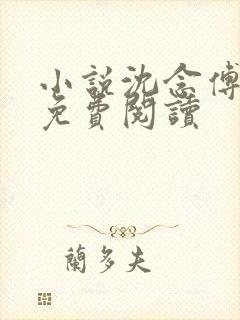 小說沈念傅
免費閱讀
蘭多夫